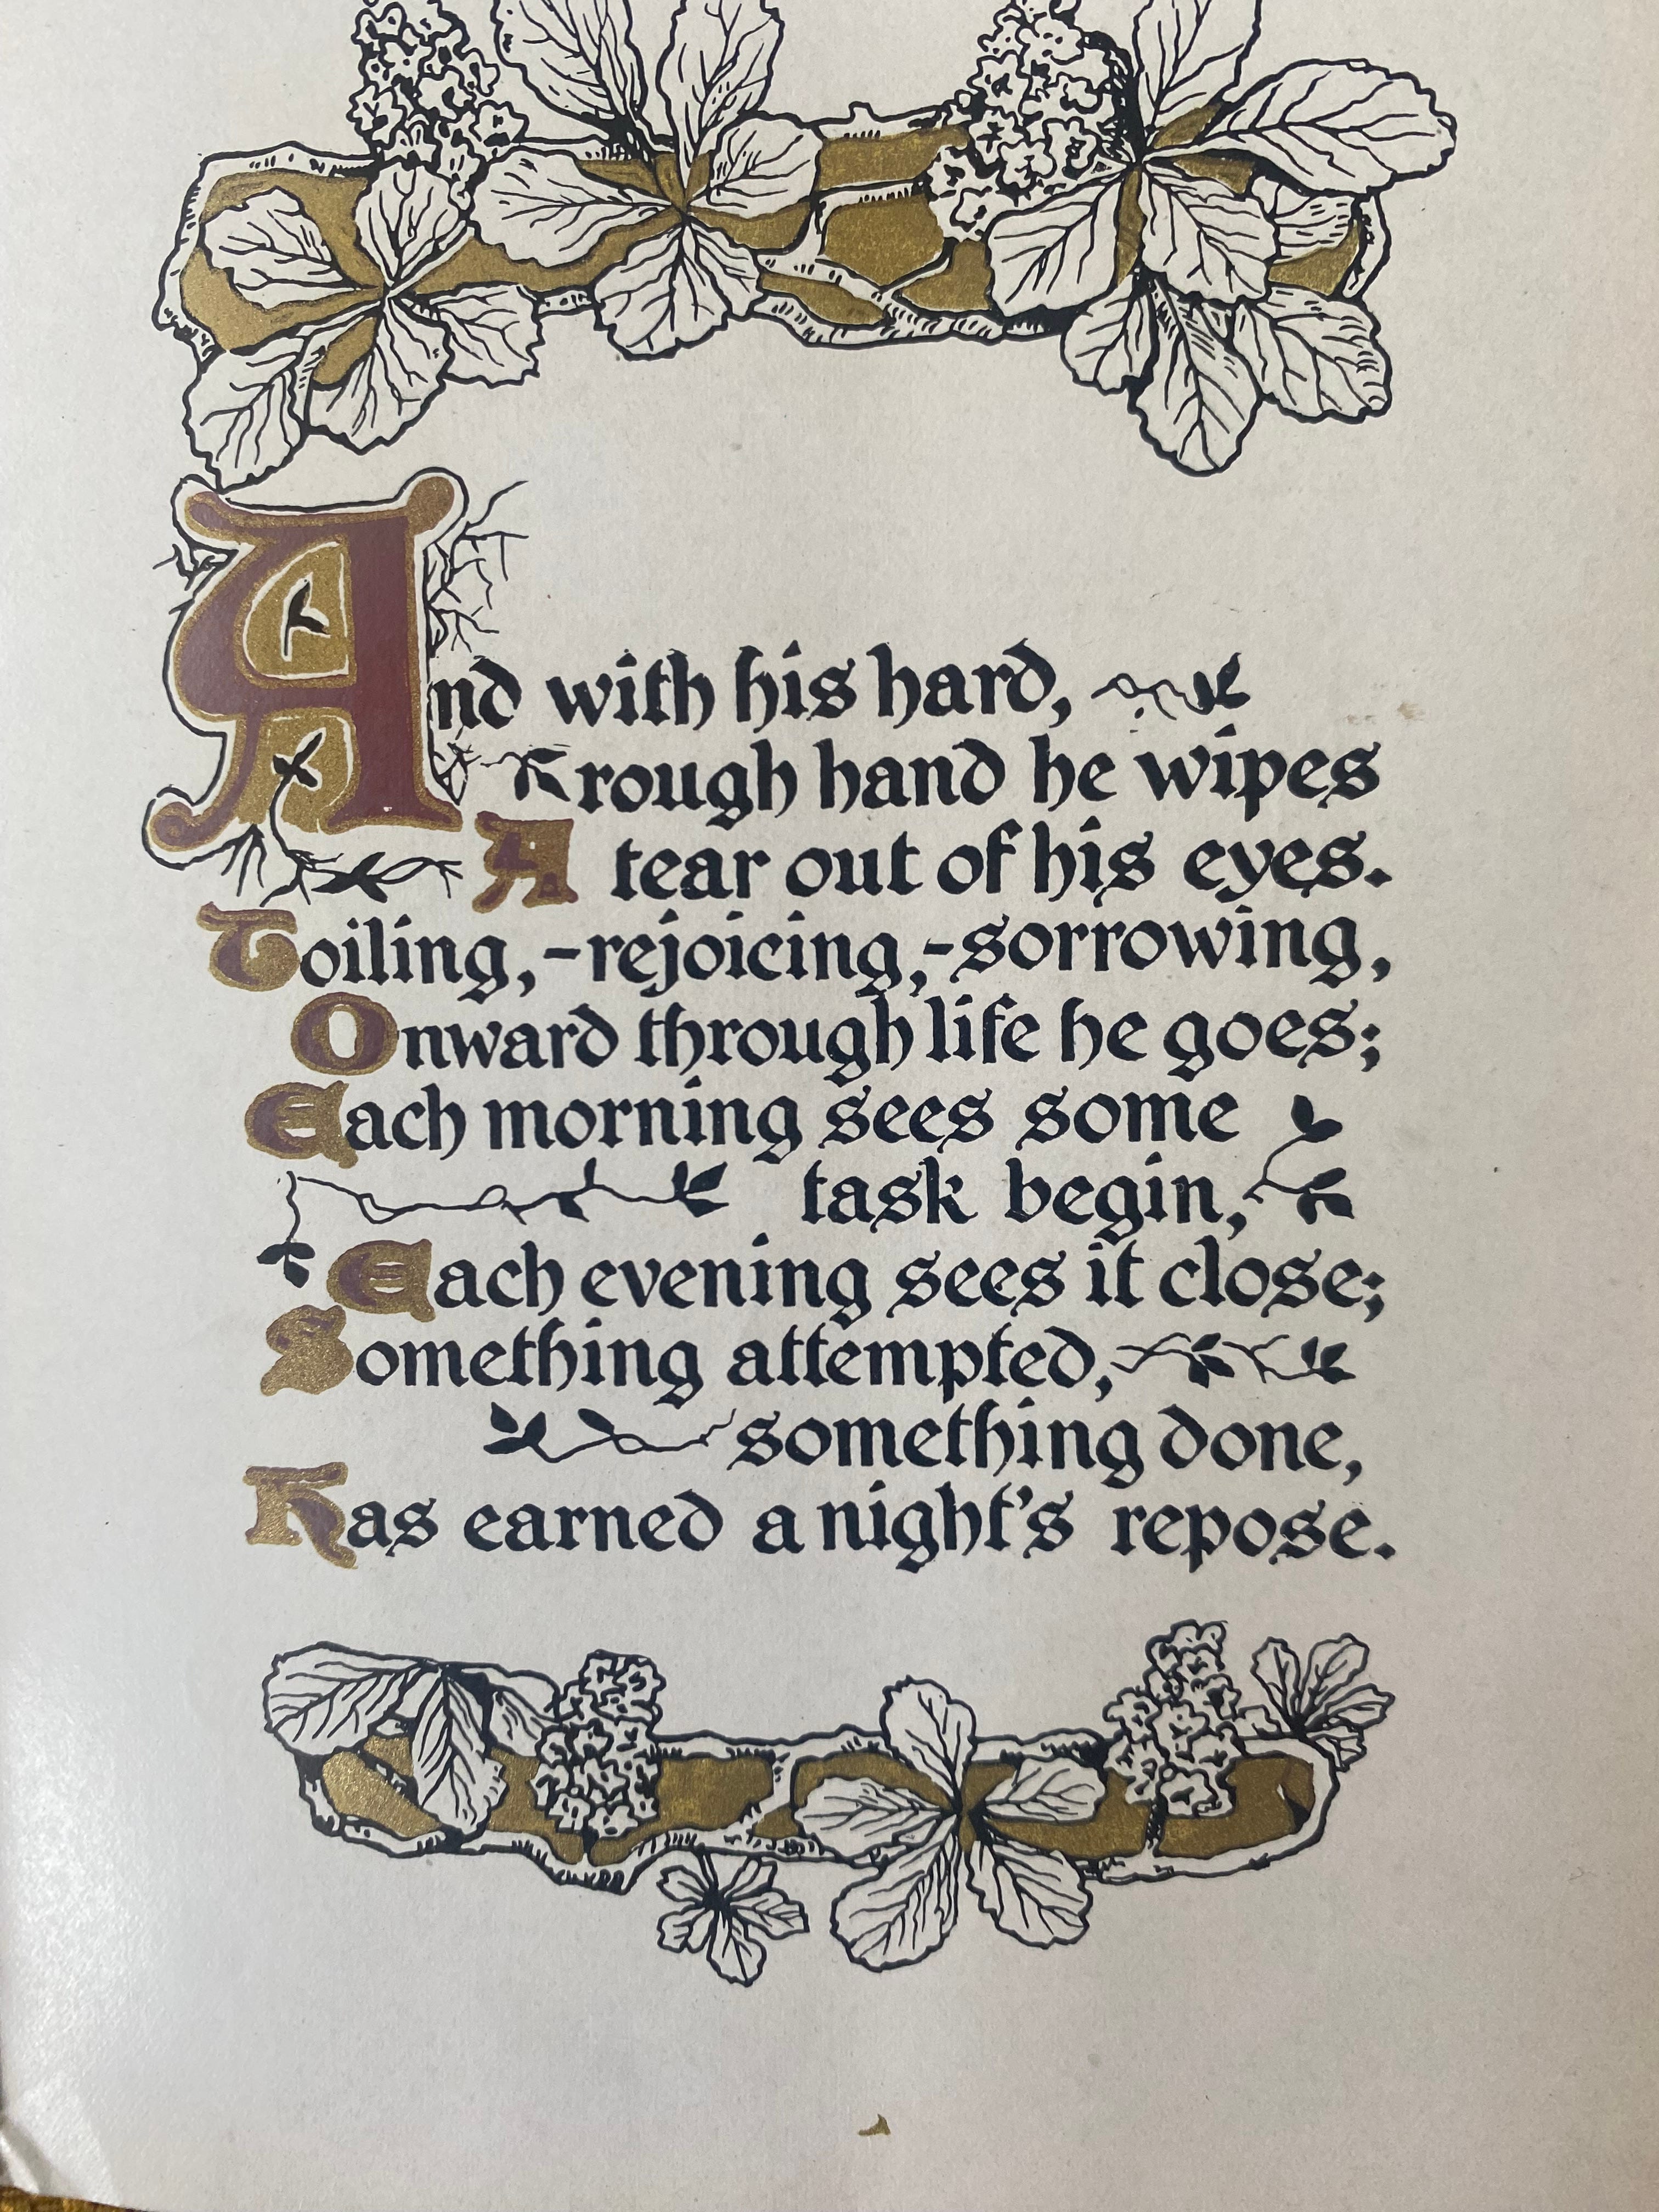 And with his hard,
rough hand he wipes
A tear out of his eyes.
Toiling,-rejoicing,-sorrowing,
Onward through life he goes;
Each morning sees some
task begin,
Each evening sees it close;
Something attempted,
something done,
Has earned a night's repose.